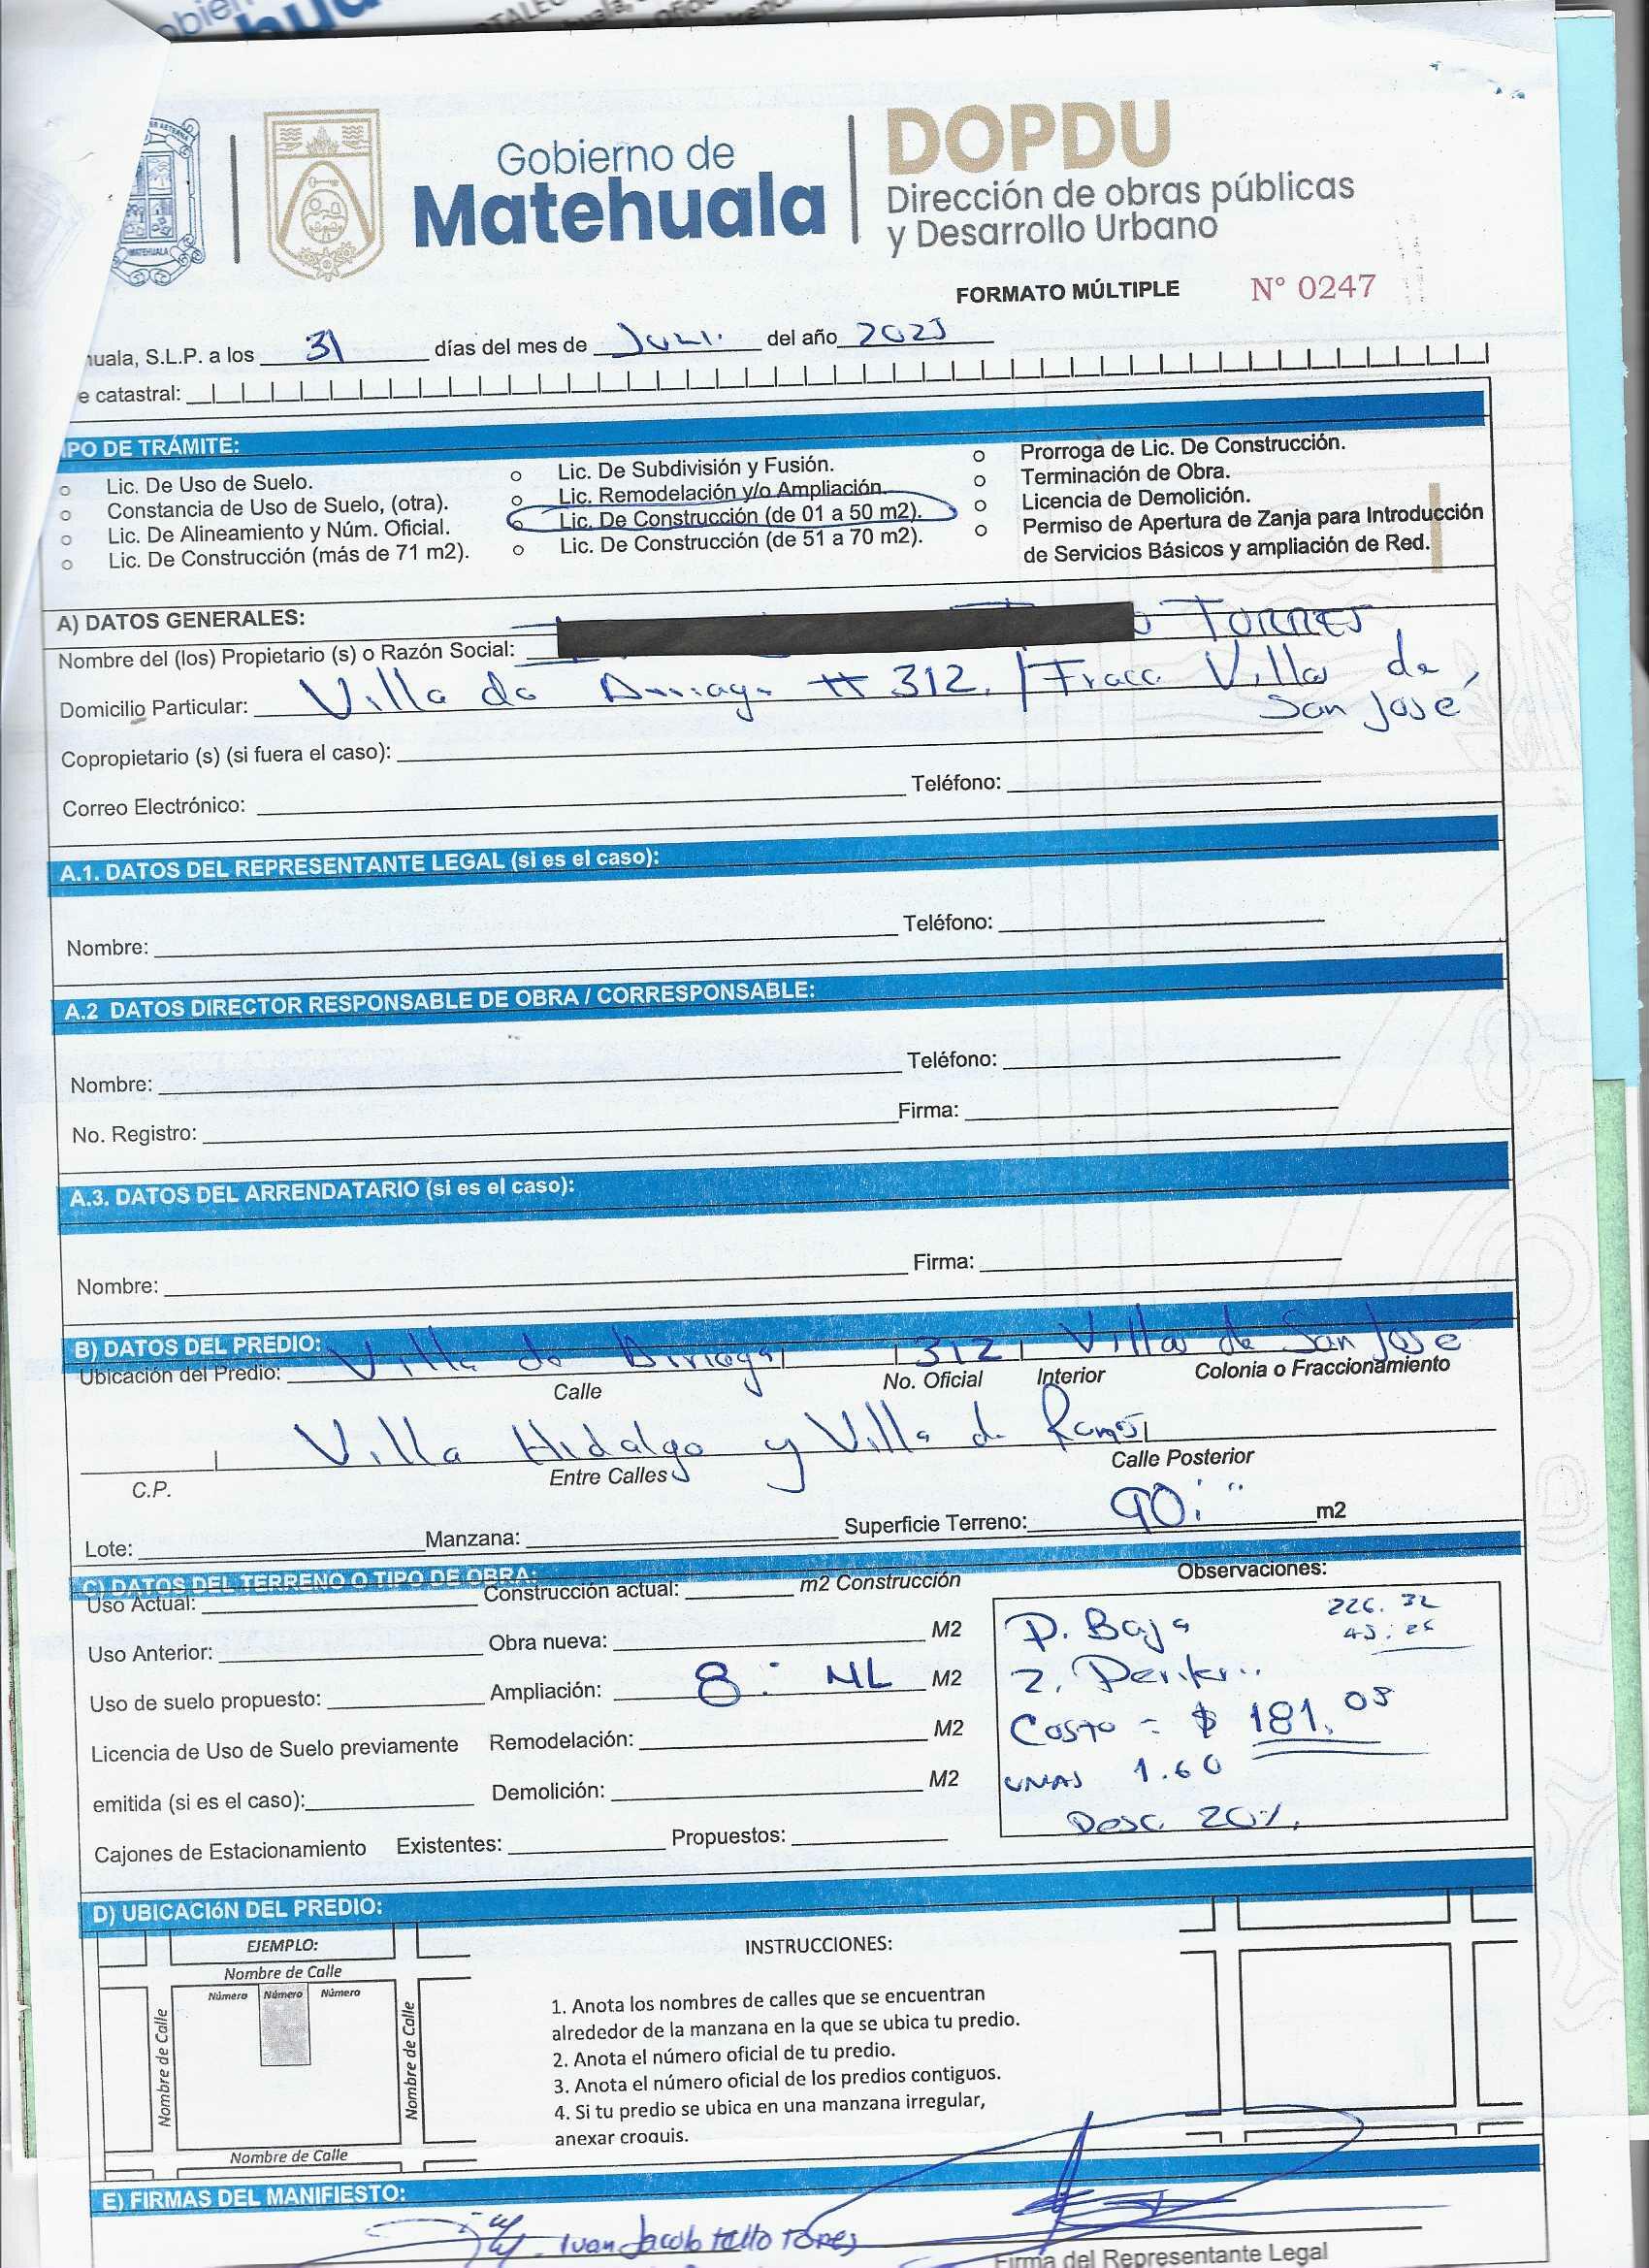 Gobierno de
Matehuala
DOPDU
Dirección de obras públicas
y Desarrollo Urbano
MATEHUALA
FORMATO MÚLTIPLE N° 0247
uala, S.L.P. a los 31 días del mes de del año
e catastral:
IPO DE TRÁMITE:
Lic. De Uso de Suelo.
Constancia de Uso de Suelo, (otra).
Lic. De Alineamiento y Núm. Oficial.
Lic. De Construcción (más de 71 m2).
Lic. De Subdivisión y Fusión.
Lic. Remodelación y/o Ampliación.
Lic. De Construcción (de 01 a 50 m2).
Lic. De Construcción (de 51 a 70 m2).
Prorroga de Lic. De Construcción.
Terminación de Obra.
Licencia de Demolición.
Permiso de Apertura de Zanja para Introducción
de Servicios Básicos y ampliación de Red.
A) DATOS GENERALES:
Nombre del (los) Propietario (s) o Razón Social: TORRES
Domicilio Particular: Villa de Arriaga # 312. Fracc Villas de
San José
Copropietario (s) (si fuera el caso):
Correo Electrónico: Teléfono:
A.1. DATOS DEL REPRESENTANTE LEGAL (si es el caso):
Nombre: Teléfono:
A.2 DATOS DIRECTOR RESPONSABLE DE OBRA / CORRESPONSABLE:
Nombre: Teléfono:
No. Registro: Firma:
A.3. DATOS DEL ARRENDATARIO (si es el caso):
Nombre: Firma:
B) DATOS DEL PREDIO:
Ubicación del Predio: Villa de Arriaga 312 Villas de San José
Calle No. Oficial Interior Colonia o Fraccionamiento
Villa Hidalgo y Villa de Ramos
C.P. Entre Calles Calle Posterior
Lote: Manzana: Superficie Terreno: 90. m2
C) DATOS DEL TERRENO O TIPO DE OBRA:
Uso Actual: Construcción actual: m2 Construcción
Uso Anterior: Obra nueva: M2
Uso de suelo propuesto: Ampliación: 8 ML M2
Licencia de Uso de Suelo previamente Remodelación: M2
emitida (si es el caso): Demolición: M2
Cajones de Estacionamiento Existentes: Propuestos:
Observaciones:
226.32
P. Baja 45.26
2.
Costo = $ 181.05
UMAS 1.60
Desc. 20%.
D) UBICACIóN DEL PREDIO:
EJEMPLO:
Nombre de Calle
Número Número Número
Nombre de Calle
Nombre de Calle
Nombre de Calle
INSTRUCCIONES:
1. Anota los nombres de calles que se encuentran
alrededor de la manzana en la que se ubica tu predio.
2. Anota el número oficial de tu predio.
3. Anota el número oficial de los predios contiguos.
4. Si tu predio se ubica en una manzana irregular,
anexar croquis.
E) FIRMAS DEL MANIFIESTO:
Ivan Jacob Tello Torres
Firma del Representante Legal